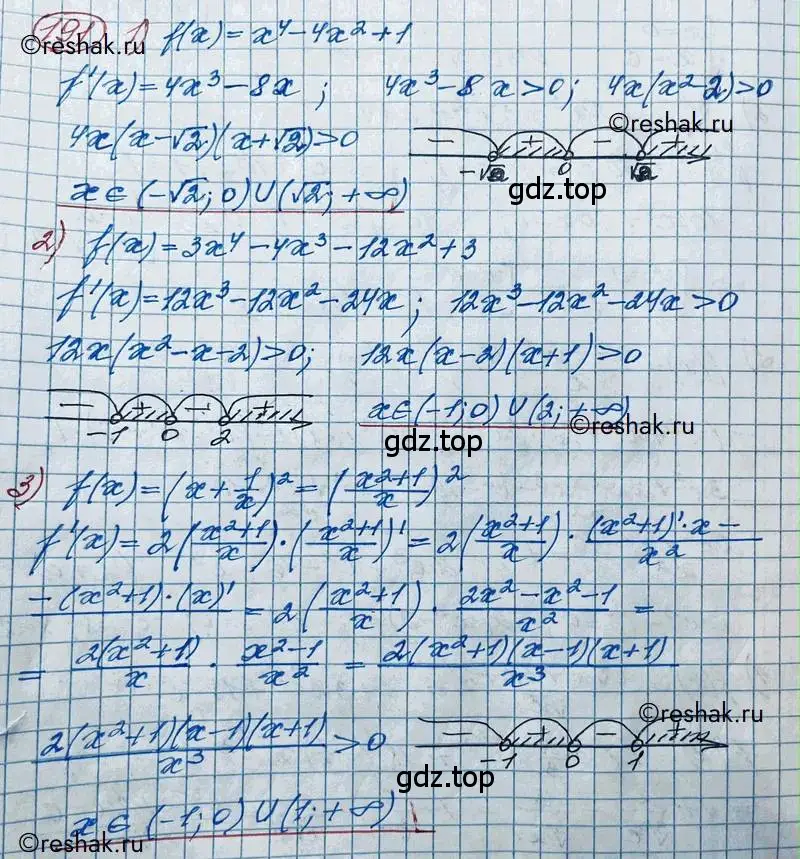 191. 1) f(x) = x⁴ - 4x² + 1
©reshak.ru
f'(x) = 4x³ - 8x ; 4x³ - 8x > 0; 4x(x² - 2) > 0
©reshak.ru
4x(x - √2)(x + √2) > 0
- + - +
-√2 0 √2
gdz.top
x ∈ (-√2; 0) ∪ (√2; +∞)
2) f(x) = 3x⁴ - 4x³ - 12x² + 3
f'(x) = 12x³ - 12x² - 24x ; 12x³ - 12x² - 24x > 0
12x(x² - x - 2) > 0; 12x(x - 2)(x + 1) > 0
- + - +
-1 0 2
x ∈ (-1; 0) ∪ (2; +∞)
©reshak.ru
gdz.top
3) f(x) = (x + 1/x)² = ((x²+1)/x)²
f'(x) = 2((x²+1)/x) · ((x²+1)/x)' = 2((x²+1)/x) · ((x²+1)'·x -)/x²
-(x²+1)·(x)' = 2((x²+1)/x) · (2x² - x² - 1)/x² =
= 2(x²+1)/x · (x²-1)/x² = 2(x²+1)(x-1)(x+1)/x³
©reshak.ru
2(x²+1)(x-1)(x+1)/x³ > 0
- + - +
-1 0 1
gdz.top
x ∈ (-1; 0) ∪ (1; +∞)
©reshak.ru
©reshak.ru